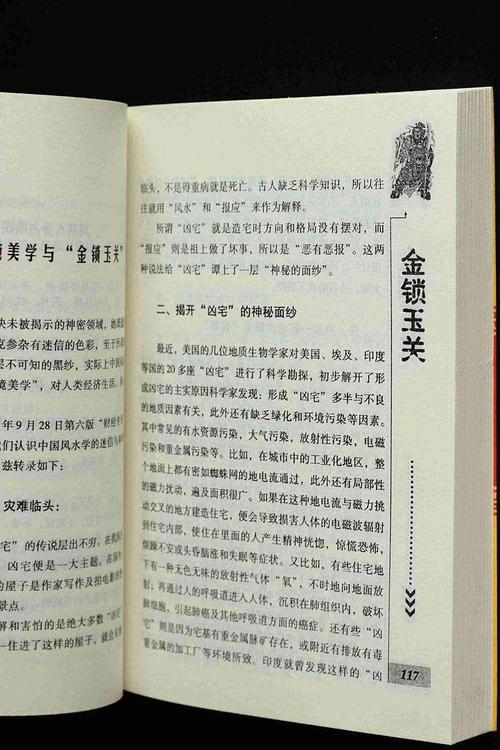 美学与“金锁玉关”
未被揭示的神密领域，她既
参杂有迷信的色彩，至于
层不可知的黑纱，实际上中国
境美学”，对人类经济生活、
年9月28日第六版“财经
们认识中国风水学的迷信与
兹转录如下：
灾难临头：
宅”的传说层出不穷，在我国
凶宅便是一大主题。在国
的屋子是作家写作及拍电
景点。
解和害怕的是绝大多数“凶宅”
一住进了这样的屋子，就会
临头，不是得重病就是死亡。古人缺乏科学知识，所以往
往就用“风水”和“报应”来作为解释。
所谓“凶宅”就是造宅时方向和格局没有摆对，而
“报应”则是祖上做了坏事，所以是“恶有恶报”。这两
种说法给“凶宅”谭上了一层“神秘的面纱”。
二、揭开“凶宅”的神秘面纱
最近，美国的几位地质生物学家对美国、埃及、印度
等国的20多座“凶宅”进行了科学勘探，初步解开了形
成凶宅的主实原因科学家发现；形成“凶宅”多半与不良
的地质因素有关，此外还有缺乏绿化和环境污染等因素。
其中常见的有水资源污染，大气污染，放射性污染，电磁
污染和重金属污染等。比如，在城市中的工业化地区，整
个地面上都有密如蜘蛛网的地电流通过，此外还有局部性
的磁力扰动，遍及面积很广。如果在这种地电流与磁力挠
动交叉的地方建造住宅，便会导致损害人体的电磁波辐射
到住宅内部，使住在里面的人产生精神恍惚，惊慌恐怖，
烦躁不安或头昏脑涨和失眠等症状。又比如，有些住宅地
下有一种无色无味的放射性气体“氡”，不时地向地面放
射；再通过人的呼吸道进入人体，沉积在肺组织内，破坏
肺细胞，引起肺癌及其他呼吸道方面的癌症。还有些“凶
宅”则是因为宅基有重金属脉矿存在，或附近有排放有毒
重金属的加工厂等环境所致。印度就曾发现这样的“凶
金锁玉关
117